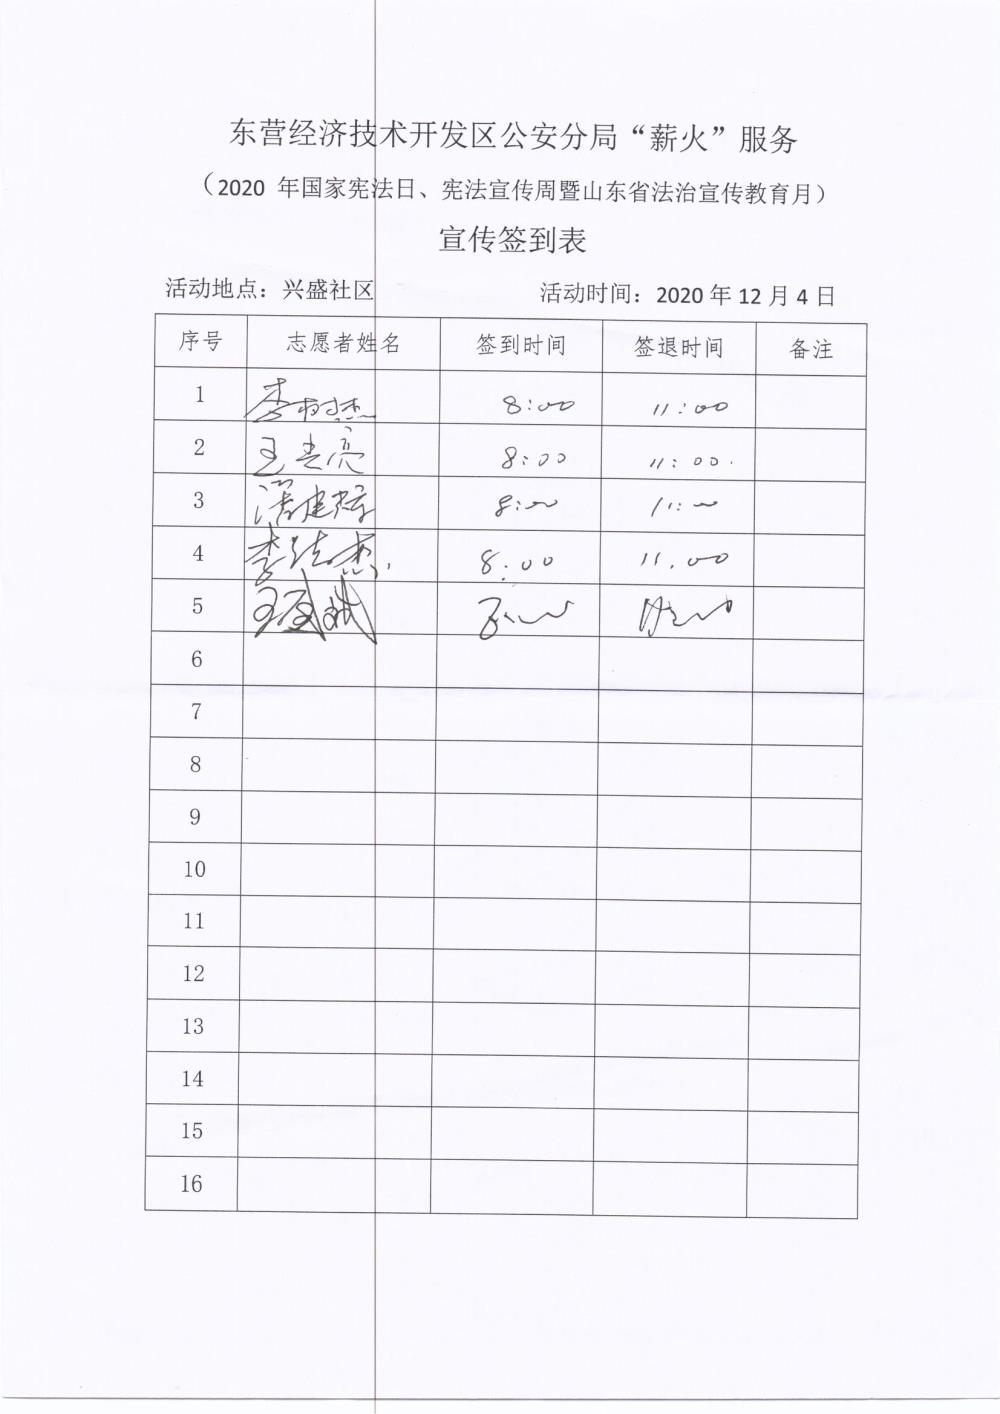 东营经济技术开发区公安分局“薪火”服务
（2020 年国家宪法日、宪法宣传周暨山东省法治宣传教育月）
宣传签到表
活动地点：兴盛社区 活动时间：2020 年 12 月 4 日
序号 志愿者姓名 签到时间 签退时间 备注
1 李树杰 8:00 11:00
2 王志亮 8:00 11:00.
3 8:00 11:00
4 李 杰 8:00 11.00
5 王
6
7
8
9
10
11
12
13
14
15
16